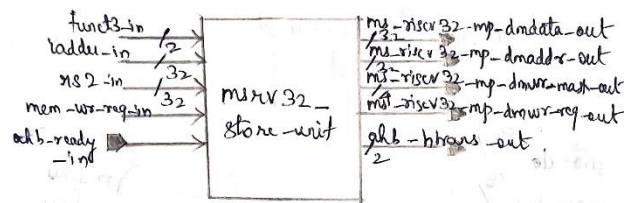 funct3-in
/2
iaddu-in
/32
rs2-in
/32
mem-wr-req-in
ahb-ready
-in
msrv32-
store-unit
ms-riscv32-mp-dmdata-out
/32
ms-riscv32-mp-dmaddr-out
/32
ms-riscv32-mp-dmwr-mask-out
/4
ms-riscv32-mp-dmwr-req-out
ahb-htrans-out
/2